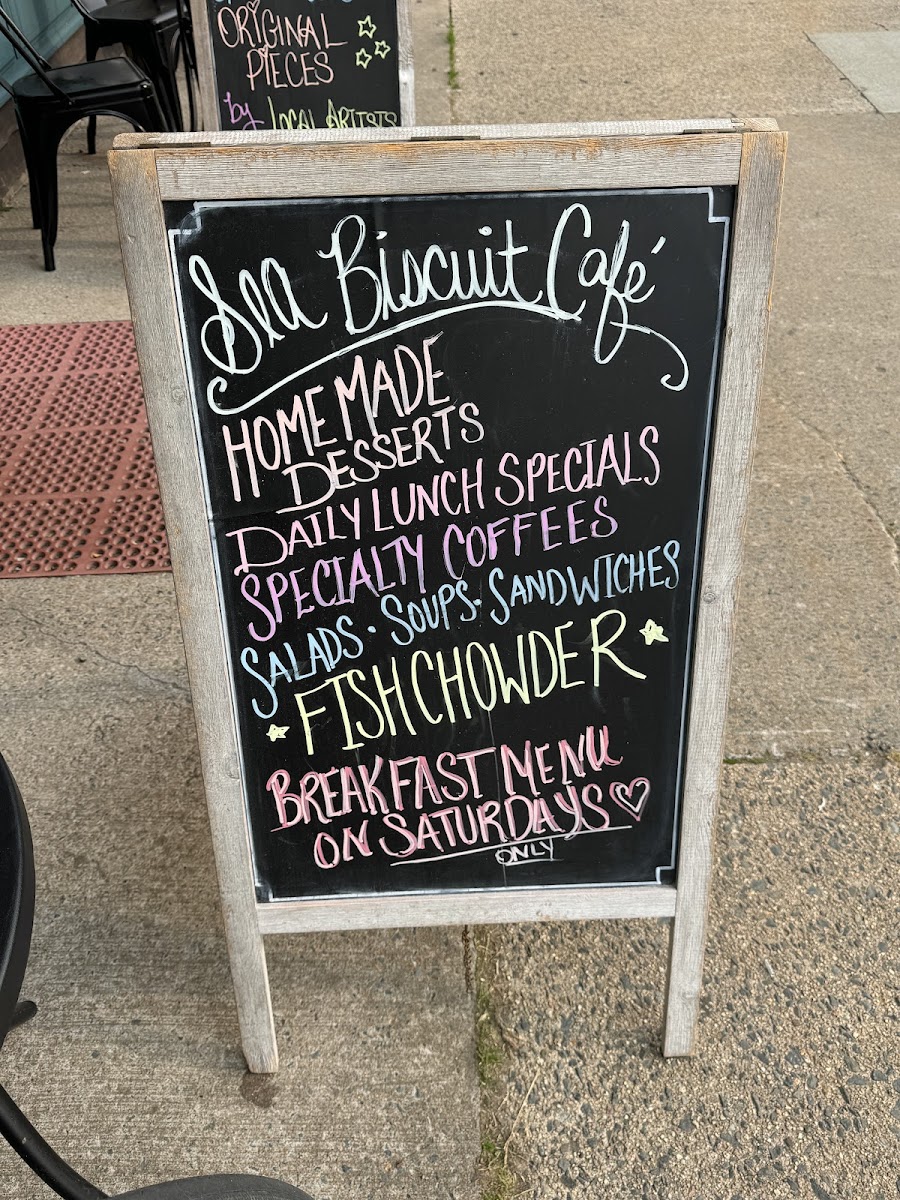 ORIGINAL
PIECES
by LOCAL ARTISTS
Sea Biscuit Café
HOMEMADE
DESSERTS
DAILY LUNCH SPECIALS
SPECIALTY COFFEES
SALADS • SOUPS • SANDWICHES
FISH CHOWDER
BREAKFAST MENU
ON SATURDAYS
ONLY